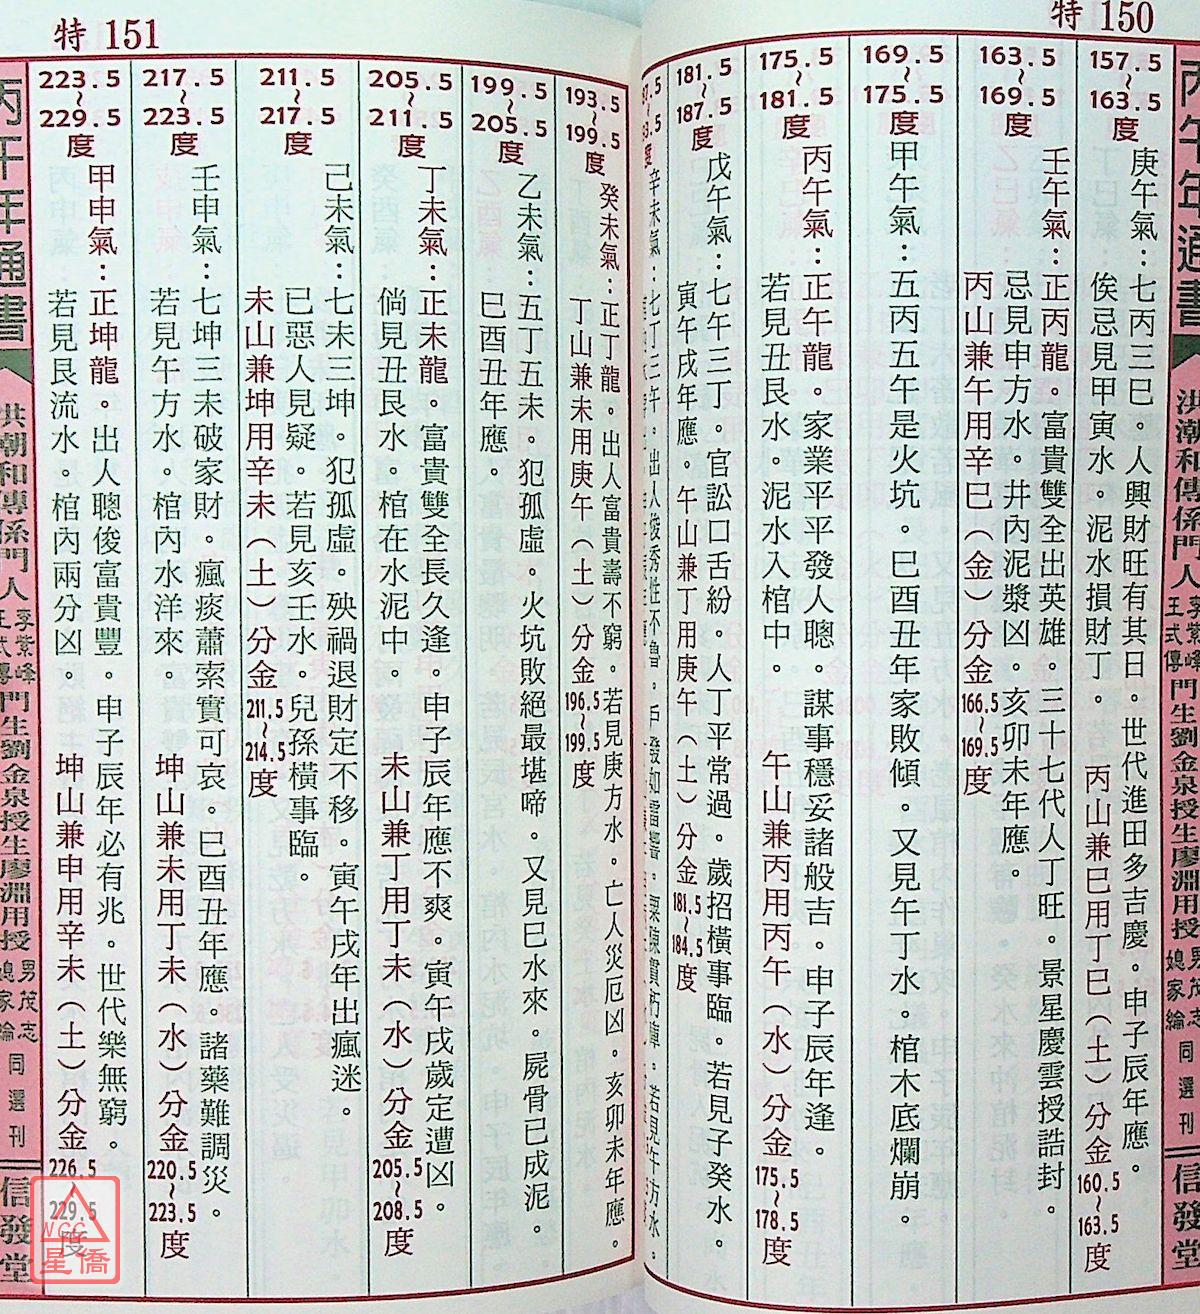 特 150
157.5
~
163.5
度
庚午氣：七丙三巳。人興財旺有其日。世代進田多吉慶。申子辰年應。
俟忌見甲寅水。泥水損財丁。 丙山兼巳用丁巳（土）分金160.5~163.5度
163.5
~
169.5
度
壬午氣：正丙龍。富貴雙全出英雄。三十七代人丁旺。景星慶雲授誥封。
忌見申方水。井內泥漿凶。亥卯未年應。
丙山兼午用辛巳（金）分金166.5~169.5度
169.5
~
175.5
度
甲午氣：五丙五午是火坑。巳酉丑年家敗傾。又見午丁水。棺木底爛崩。
175.5
~
181.5
度
丙午氣：正午龍。家業平平發人聰。謀事穩妥諸般吉。申子辰年逢。
若見丑艮水。泥水入棺中。 午山兼丙用丙午（水）分金175.5~178.5度
181.5
~
187.5
度
戊午氣：七午三丁。官訟口舌紛。人丁平常過。歲招橫事臨。若見子癸水。
寅午戌年應。午山兼丁用庚午（土）分金181.5~184.5度
辛未氣：七丁三午。出人俊秀性不魯。
若見午方水。
丙午年通書
洪潮和傳係門人李紫峰王式傳門生劉金泉授生廖淵用授男茂志媳家綸同選刊
信發堂
特 151
193.5
~
199.5
度
癸未氣：正丁龍。出人富貴壽不窮。若見庚方水。亡人災厄凶。亥卯未年應。
丁山兼未用庚午（土）分金196.5~199.5度
199.5
~
205.5
度
乙未氣：五丁五未。犯孤虛。火坑敗絕最堪啼。又見巳水來。屍骨已成泥。
巳酉丑年應。
205.5
~
211.5
度
丁未氣：正未龍。富貴雙全長久逢。申子辰年應不爽。寅午戌歲定遭凶。
倘見丑艮水。棺在水泥中。 未山兼丁用丁未（水）分金205.5~208.5度
211.5
~
217.5
度
己未氣：七未三坤。犯孤虛。殃禍退財定不移。寅午戌年出瘋迷。
已惡人見疑。若見亥壬水。兒孫橫事臨。
未山兼坤用辛未（土）分金211.5~214.5度
217.5
~
223.5
度
壬申氣：七坤三未破家財。瘋痰蕭索實可哀。巳酉丑年應。諸藥難調災。
若見午方水。棺內水洋來。 坤山兼未用丁未（水）分金220.5~223.5度
223.5
~
229.5
度
甲申氣：正坤龍。出人聰俊富貴豐。申子辰年必有兆。世代樂無窮。
若見艮流水。棺內兩分凶。 坤山兼申用辛未（土）分金226.5~229.5度
丙午年通書
洪潮和傳係門人李紫峰王式傳門生劉金泉授生廖淵用授男茂志媳家綸同選刊
信發堂
WCC
星僑